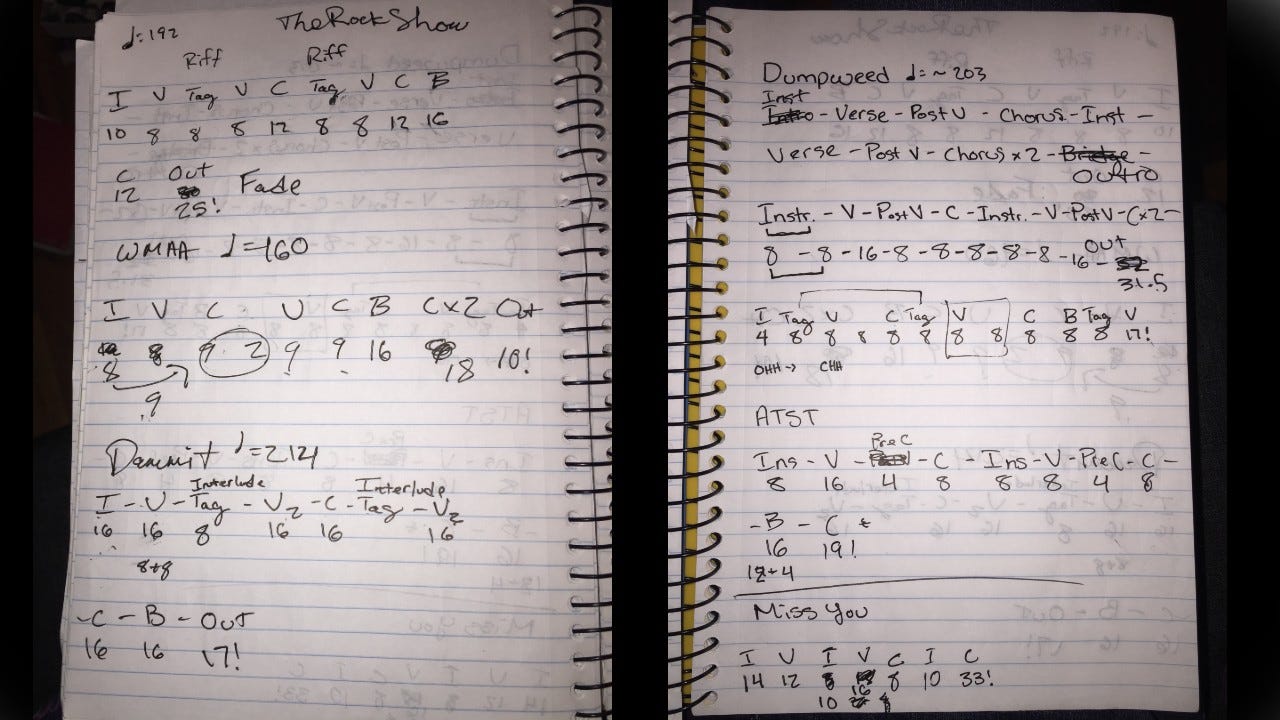 ♩=192 The Rock Show
Riff Riff
I V Tag V C Tag V C B
10 8 8 8 12 8 8 12 16
C Out
12 Fade
25!
WMAA ♩=160
I V C V C B C×2 Out
8 9 2 9 9 16 18 10!
9
Dammit ♩=214
Interlude Interlude
I - V - Tag - V2 - C - Tag - V2
16 16 8 16 16 16
8+8
-C - B - Out
16 16 17!
Dumpweed ♩=~203
Inst
Intro - Verse - Post V - Chorus - Inst -
Verse - Post V - Chorus ×2 - Bridge -
Outro
Instr. - V - Post V - C - Instr. - V - Post V - C×2 -
Out
8 - 8 - 16 - 8 - 8 - 8 - 8 - 8 - 16 - 32
31.5
I Tag V C Tag V C B Tag V
4 8 8 8 8 8 8 8 8 8 8 17!
OHH → CHH
ATST
PreC
Ins - V - - C - Ins - V - PreC - C -
8 16 4 8 8 8 4 8
- B - C
16 19!
12+4
Miss You
I V I V C I C
14 12 8 8 10 33!
16
10